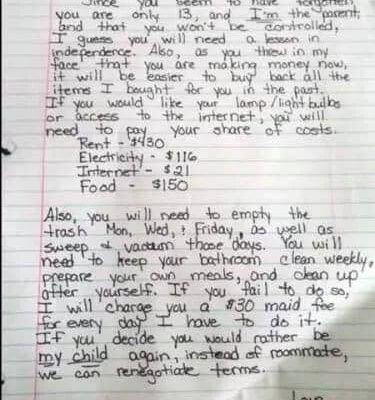 Since you seem to have forgotten
you are only 13, and I'm the parent,
and that you won't be controlled,
I guess you will need a lesson in
independence. Also, as you threw in my
face that you are making money now,
it will be easier to buy back all the
items I bought for you in the past.
If you would like your lamp/light bulbs
or access to the internet, you will
need to pay your share of costs.
Rent - $430
Electricity - $116
Internet - $21
Food - $150
Also, you will need to empty the
trash Mon, Wed, & Friday, as well as
sweep & vacuum those days. You will
need to keep your bathroom clean weekly,
prepare your own meals, and clean up
after yourself. If you fail to do so,
I will charge you a $30 maid fee
for every day I have to do it.
If you decide you would rather be
my child again, instead of roommate,
we can renegotiate terms.
Love